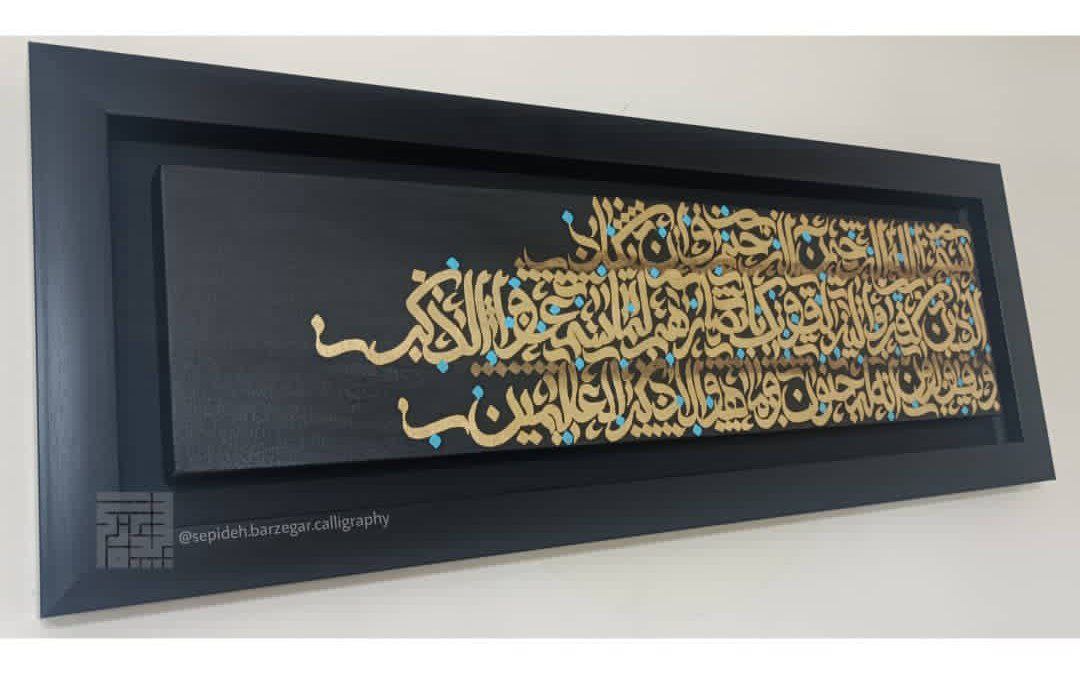 بسم الله الرحمن الرحیم و ان یکاد
الذین کفروا لیزلقونک بابصارهم لما سمعوا الذکر
و یقولون انه لمجنون و ما هو الا ذکر للعالمین
@sepideh.barzegar.calligraphy